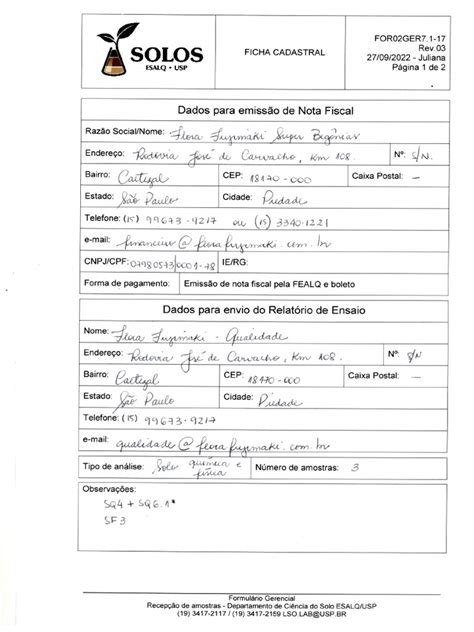 SOLOS
ESALQ • USP
FICHA CADASTRAL
FOR02GER7.1-17
Rev.03
27/09/2022 - Juliana
Página 1 de 2
Dados para emissão de Nota Fiscal
Razão Social/Nome: Flora Fujimaki Super Begônias
Endereço: Rodovia José de Carvalho, Km 108. Nº: S/N.
Bairro: Caetezal CEP: 18170-000 Caixa Postal: —
Estado: São Paulo Cidade: Piedade
Telefone: (15) 99673-9217 ou (15) 3340.1221
e-mail: financeiro@florafujimaki.com.br
CNPJ/CPF: 07980573/0001-78 IE/RG:
Forma de pagamento: Emissão de nota fiscal pela FEALQ e boleto
Dados para envio do Relatório de Ensaio
Nome: Flora Fujimaki - Qualidade
Endereço: Rodovia José de Carvalho, Km 108. Nº: S/N
Bairro: Caetezal CEP: 18170-000 Caixa Postal: —
Estado: São Paulo Cidade: Piedade
Telefone: (15) 99673-9217
e-mail: qualidade@florafujimaki.com.br
Tipo de análise: Solo química e física Número de amostras: 3
Observações:
SQ4 + SQ6.1*
SF3
Formulário Gerencial
Recepção de amostras - Departamento de Ciência do Solo ESALQ/USP
(19) 3417-2117 / (19) 3417-2159 LSO.LAB@USP.BR